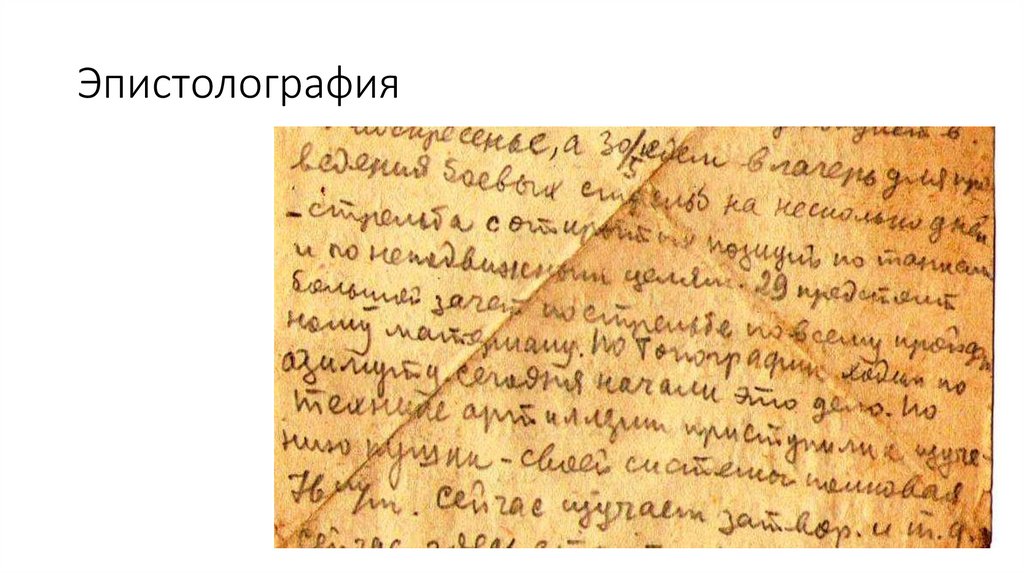 Эпистолография
воскресенье, а 30/5 едем в лагерь для про
ведения боевых стрельб на несколько дней
-стрельба с открытых позиций по танкам
и по неподвижным целям. 29 предстоит
большой зачет по стрельбе по всему пройден
ному материалу. По топографии ходим по
азимуту, сегодня начали это дело. По
технике артиллерии приступили к изуче-
нию пушки - своей системы полковая
76 м/м. сейчас изучаем затвор. и т.д.
сейчас